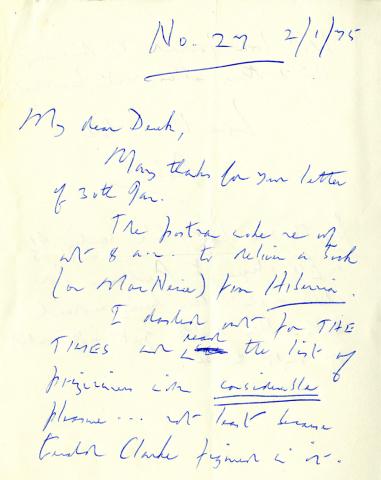 No. 27 2/1/75
My dear Derek,
Many thanks for your letter
of 30th Jan.
The postman woke me up
at 8 a.m. to deliver a book
(on MacNeice) from Hibernia.
I dashed out for THE
TIMES and read the list of
prizewinners with considerable
pleasure ... not least because
Austin Clarke figured in it.